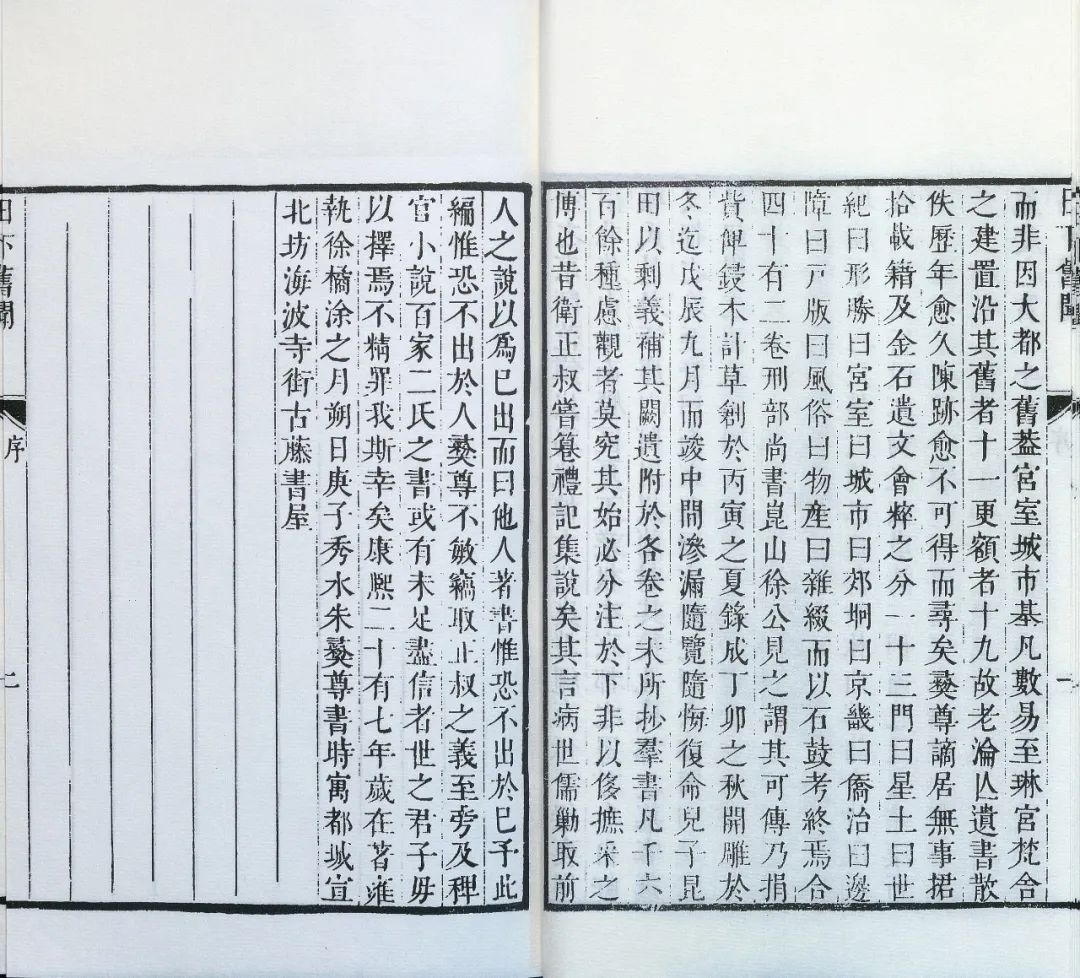 日下舊聞
而非因大都之舊葢宮室城市基凡數易至琳宮梵舍
之建置沿其舊者十一更額者十九故老淪亾遺書散
佚歷年愈久陳跡愈不可得而尋矣彝尊謫居無事捃
拾載籍及金石遺文會粹之分一十三門曰星土曰世
紀曰形勝曰宮室曰城市曰郊坰曰京畿曰僑治曰邊
障曰戸版曰風俗曰物產曰雜綴而以石鼓考終焉合
四十有二卷刑部尚書崑山徐公見之謂其可傳乃捐
貲俾鋟木計草創於丙寅之夏錄成丁卯之秋開雕於
冬迄戊辰九月而竣中間滲漏隨覽隨悔復命兒子昆
田以剩義補其闕遺附於各卷之末所抄羣書凡千六
百餘種慮觀者莫究其始必分注於下非以侈摭采之
博也昔衛正叔嘗纂禮記集說矣其言病世儒勦取前
人之說以爲已出而曰他人著書惟恐不出於已予此
編惟恐不出於人彝尊不敏竊取正叔之義至旁及稗
官小說百家二氏之書或有未足盡信者世之君子毋
以擇焉不精罪我斯幸矣康熙二十有七年歲在著雍
執徐橘涂之月朔日庚子秀水朱彝尊書時寓都城宣
北坊海波寺街古藤書屋
日下舊聞
序
二